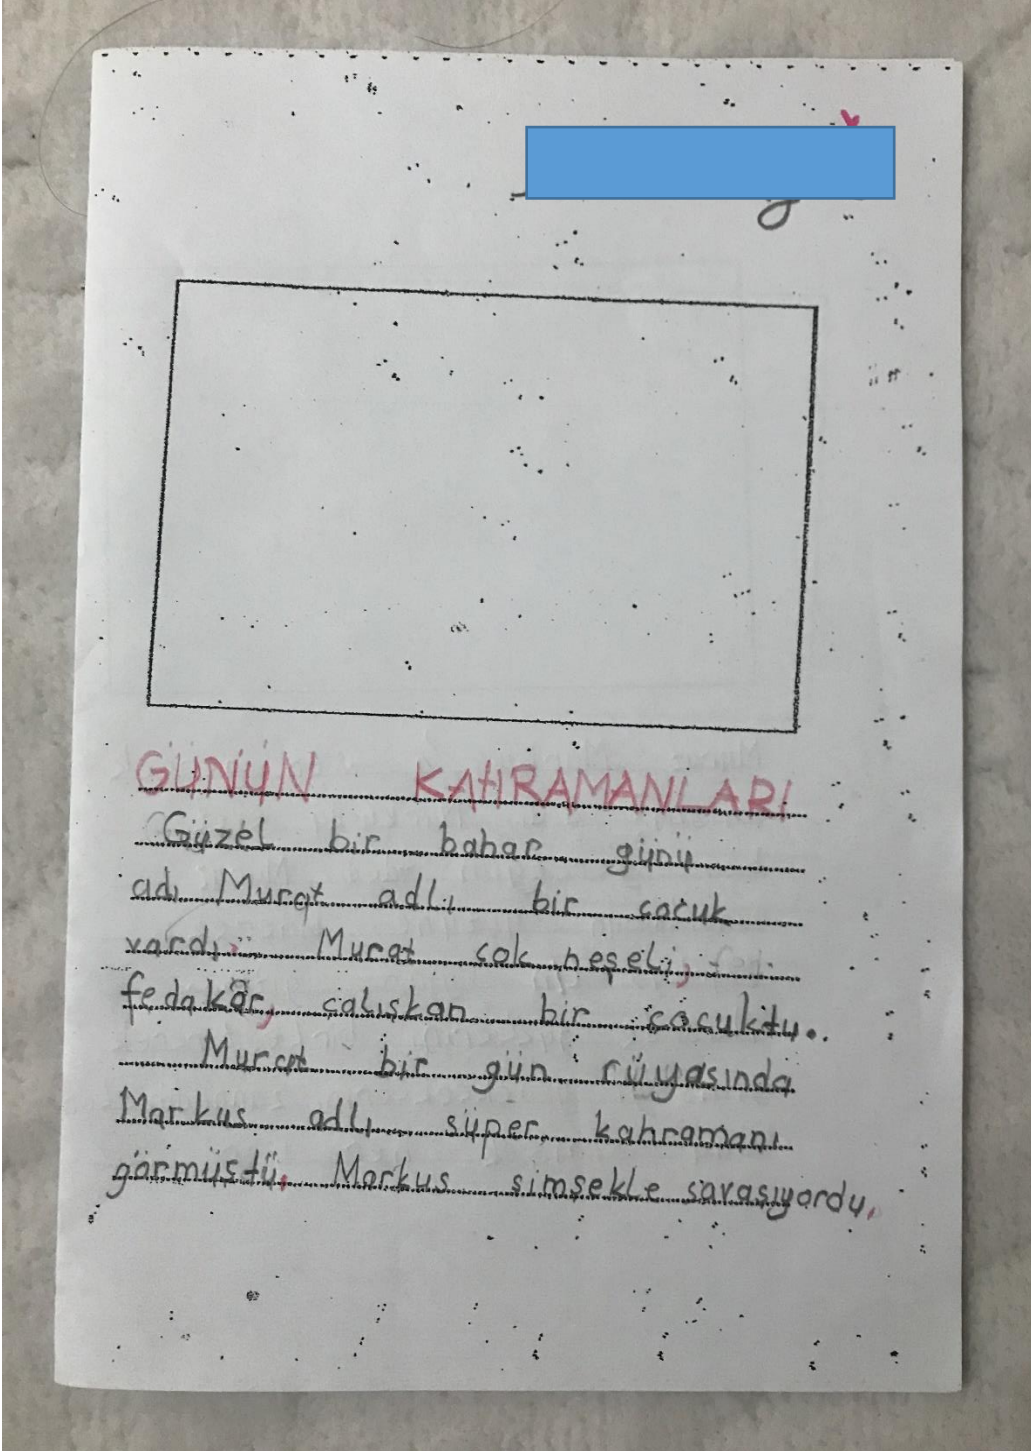 GÜNÜN KAHRAMANLARI
Güzel bir bahar günü
adı Murat adlı bir çocuk
vardı. Murat çok neşeli,
fedakâr, çalışkan bir çocuktu.
Murat bir gün rüyasında
Markus adlı süper kahramanı
görmüştü. Markus şimşekle savaşıyordu.